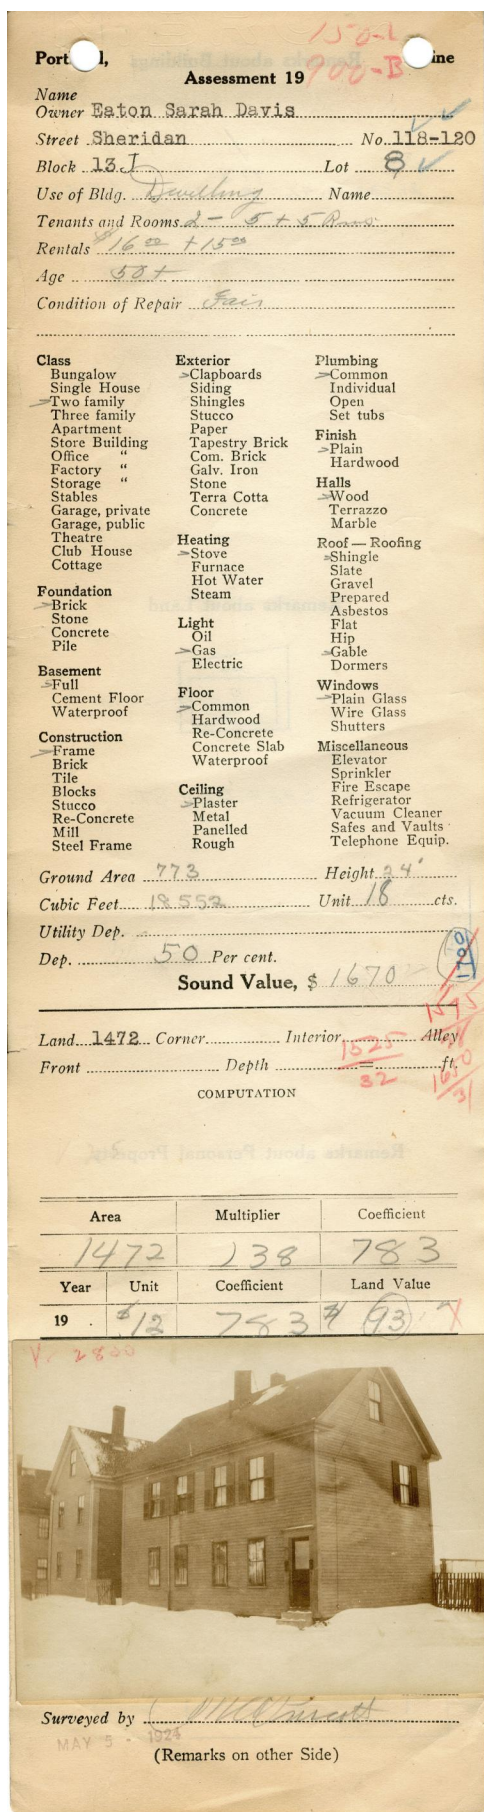 150-L
Port d, ine
900-B
Assessment 19
Name
Owner Eaton Sarah Davis
Street Sheridan No. 118-120
Block 13 J Lot 8
Use of Bldg. Dwelling Name
Tenants and Rooms 2 - 5 + 5 Rms
Rentals $16 00 + 15 00
Age 50+
Condition of Repair Fair
Class
Bungalow
Single House
Two family
Three family
Apartment
Store Building
Office "
Factory "
Storage "
Stables
Garage, private
Garage, public
Theatre
Club House
Cottage
Foundation
Brick
Stone
Concrete
Pile
Basement
Full
Cement Floor
Waterproof
Construction
Frame
Brick
Tile
Blocks
Stucco
Re-Concrete
Mill
Steel Frame
Exterior
Clapboards
Siding
Shingles
Stucco
Paper
Tapestry Brick
Com. Brick
Galv. Iron
Stone
Terra Cotta
Concrete
Heating
Stove
Furnace
Hot Water
Steam
Light
Oil
Gas
Electric
Floor
Common
Hardwood
Re-Concrete
Concrete Slab
Waterproof
Ceiling
Plaster
Metal
Panelled
Rough
Plumbing
Common
Individual
Open
Set tubs
Finish
Plain
Hardwood
Halls
Wood
Terrazzo
Marble
Roof — Roofing
Shingle
Slate
Gravel
Prepared
Asbestos
Flat
Hip
Gable
Dormers
Windows
Plain Glass
Wire Glass
Shutters
Miscellaneous
Elevator
Sprinkler
Fire Escape
Refrigerator
Vacuum Cleaner
Safes and Vaults
Telephone Equip.
Ground Area 773 Height 24'
Cubic Feet 18552 Unit 18 cts.
Utility Dep.
Dep. 50 Per cent.
Sound Value, $ 1670
Land 1472 Corner Interior Alley
1525
32
1650
31
Front Depth = ft.
COMPUTATION
Area Multiplier Coefficient
1472 138 783
Year Unit Coefficient Land Value
19 . $12 783 $ 93
V. 2800
Surveyed by
MAY 5 - 1924
(Remarks on other Side)